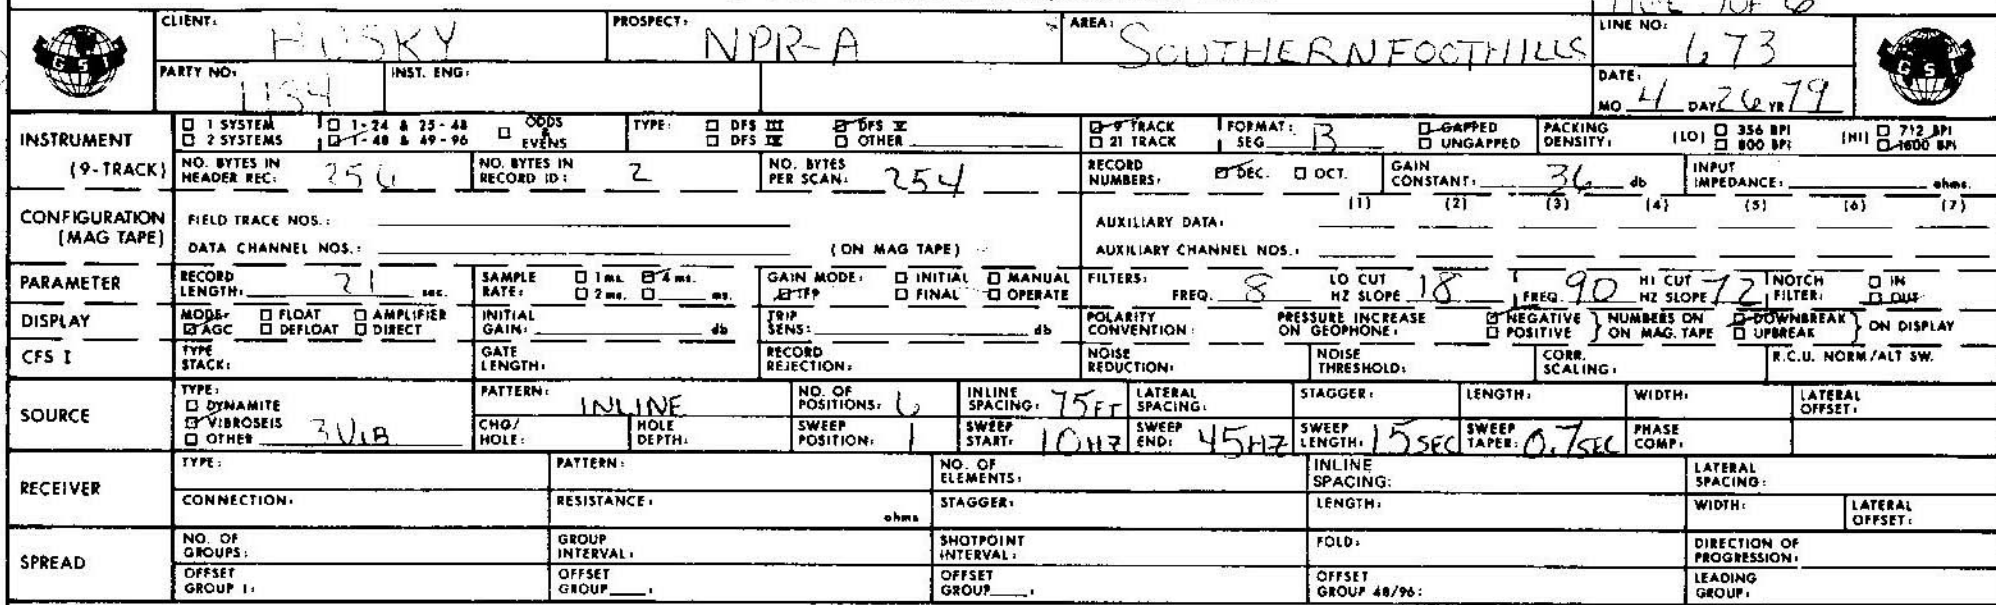 PAGE 1 OF 6
CLIENT: HUSKY PROSPECT: NPR-A AREA: SOUTHERN FOOTHILLS LINE NO: 673
GSI GSI
PARTY NO: 1184 INST. ENG: DATE: MO 4 DAY 26 YR 79
INSTRUMENT (9-TRACK)
☐ 1 SYSTEM ☐ 1-24 & 25-48 ☐ ODDS & EVENS TYPE: ☐ DFS III ☑ DFS V ☑ 9 TRACK FORMAT: SEG B ☑ GAPPED PACKING DENSITY: (LO) ☐ 356 BPI (HI) ☐ 712 BPI
☐ 2 SYSTEMS ☑ 1-48 & 49-96 ☐ DFS IV ☐ OTHER ☐ 21 TRACK ☐ UNGAPPED ☐ 800 BPI ☑ 1600 BPI
NO. BYTES IN HEADER REC: 256 NO. BYTES IN RECORD ID: 2 NO. BYTES PER SCAN: 254 RECORD NUMBERS: ☑ DEC. ☐ OCT. GAIN CONSTANT: 36 db INPUT IMPEDANCE: ohms.
CONFIGURATION (MAG TAPE)
(1) (2) (3) (4) (5) (6) (7)
FIELD TRACE NOS.: AUXILIARY DATA:
DATA CHANNEL NOS.: (ON MAG TAPE) AUXILIARY CHANNEL NOS.:
PARAMETER RECORD LENGTH: 21 sec. SAMPLE RATE: ☐ 1 ms. ☑ 4 ms. ☐ 2 ms. ☐ ms. GAIN MODE: ☐ INITIAL ☐ MANUAL ☑ IFP ☐ FINAL ☐ OPERATE FILTERS: FREQ. 8 LO CUT HZ SLOPE 18 FREQ. 90 HI CUT HZ SLOPE 72 NOTCH FILTER: ☐ IN ☑ OUT
DISPLAY MODE: ☐ FLOAT ☐ AMPLIFIER ☑ AGC ☐ DEFLOAT ☐ DIRECT INITIAL GAIN: db TRIP SENS: db POLARITY CONVENTION: PRESSURE INCREASE ON GEOPHONE: ☑ NEGATIVE ☐ POSITIVE } NUMBERS ON MAG. TAPE ☑ DOWNBREAK ☐ UPBREAK } ON DISPLAY
CFS I TYPE STACK: GATE LENGTH: RECORD REJECTION: NOISE REDUCTION: NOISE THRESHOLD: CORR. SCALING: R.C.U. NORM/ALT SW.
SOURCE TYPE: ☐ DYNAMITE ☑ VIBROSEIS ☐ OTHER 3 VIB
PATTERN: INLINE NO. OF POSITIONS: 6 INLINE SPACING: 75 FT LATERAL SPACING: STAGGER: LENGTH: WIDTH: LATERAL OFFSET:
CHG/HOLE: HOLE DEPTH: SWEEP POSITION: 1 SWEEP START: 10 HZ SWEEP END: 45 HZ SWEEP LENGTH: 15 SEC SWEEP TAPER: 0.7 SEC PHASE COMP:
RECEIVER TYPE: PATTERN: NO. OF ELEMENTS: INLINE SPACING: LATERAL SPACING:
CONNECTION: RESISTANCE: ohms STAGGER: LENGTH: WIDTH: LATERAL OFFSET:
SPREAD NO. OF GROUPS: GROUP INTERVAL: SHOTPOINT INTERVAL: FOLD: DIRECTION OF PROGRESSION:
OFFSET GROUP 1: OFFSET GROUP ____: OFFSET GROUP ____: OFFSET GROUP 48/96: LEADING GROUP: